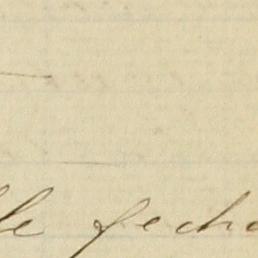 le fecha